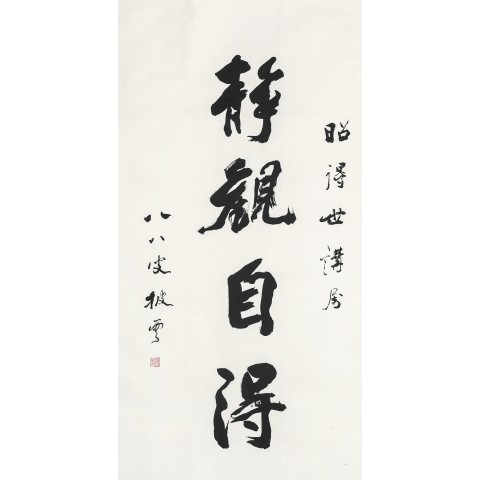 昭得世講屬
靜觀自得
八八叟披雲